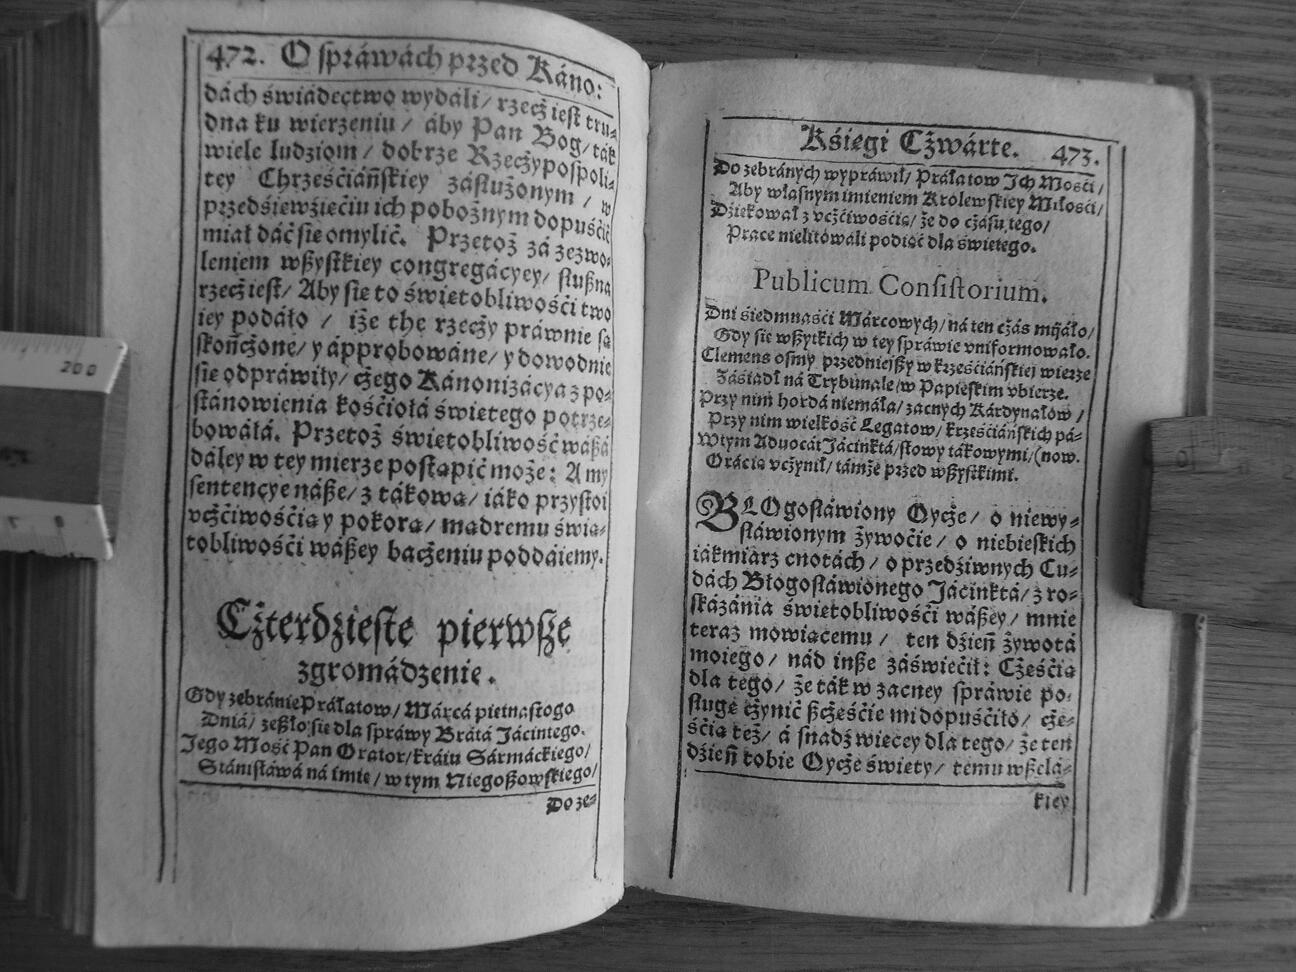 472. O spráwách przed Káno:
dách świádectwo wydáli/ rzecż iest tru-
dna ku wierzeniu/ áby Pan Bog/ ták
wiele ludziom/ dobrze Rzecżypospoli-
tey Chrześćiáńskiey zásłużonym/ w
przedśiewźięćiu ich pobożnym dopuśćić
miał dáć sie omylić. Przetoż zá zezwo-
leniem wßystkiey congregácyey/ słußna
rzecż iest/ Aby sie to świetobliwośći two
iey podáło/ iże the rzecży práwnie są
skończone/ y ápprobowáne/ y dowodnie
sie odpráwiły/ cżego Kánonizácya z po-
stánowienia kośćiołá świetego potrze-
bowáłá. Przetoż świetobliwość wáßá
dáley w tey mierze postąpić może: A my
sentencye náße/ z tákową/ iáko przystoi
vcżćiwośćią y pokorą/ mądremu świą-
tobliwośći wáßey bacżeniu poddáiemy.
Cżterdzieste pierwsze
zgromádzenie.
Gdy zebránie Práłatow/ Márcá pietnastego
Dniá/ zeßło sie dla spráwy Brátá Jácintego.
Jego Mość Pan Orator/ kráiu Sármáckiego/
Stánisławá ná imie/ w tym Niegoßowskiego/
Do ze-
Kśięgi Cżwarte. 473.
Do zebránych wypráwił/ Práłatow Jch Mośći/
Aby własnym imieniem Krolewskiey Miłośći/
Dźiękował z vcżćiwośćią/ że do cżásu tego/
Prace nielitowáli podiąć dla świetego.
Publicum Consistorium.
Dni siedmnaśći Márcowych/ ná ten cżás mijáło/
Gdy sie wßytkich w tey spráwie vniformowáło.
Clemens osmy przednieyßy w krześćiáńskiej wierze
Záśiadł ná Trybunale/ w Papieskim vbierze.
Przy nim hordá niemáła/ zacnych Kárdynałow/
Przy nim wielkość Legatow/ krześćiáńskich pá-
Wtym Aduocat Jácinktá/ słowy tákowymi/ (now.
Orácią vcżynił/ támże przed wßystkimi.
BŁOgosłáwiony Oycże/ o niewy-
słáwionym żywoćie/ o niebieskich
iákmiarz cnotách/ o przedźiwnych Cu-
dách Błogosłáwionego Jácinktá/ z ro-
skázánia świetobliwośći wáßey/ mnie
teraz mowiącemu/ ten dźień żywotá
moiego/ nád inße záświećił: Cżęśćią
dla tego/ że ták w zacney spráwie po-
sługę cżynić ßcżęśćie mi dopuśćiło/ cżę-
śćią też/ á snadź więcey dla tego/ że ten
dźień tobie Oycże święty/ temu wßelá-
kiey